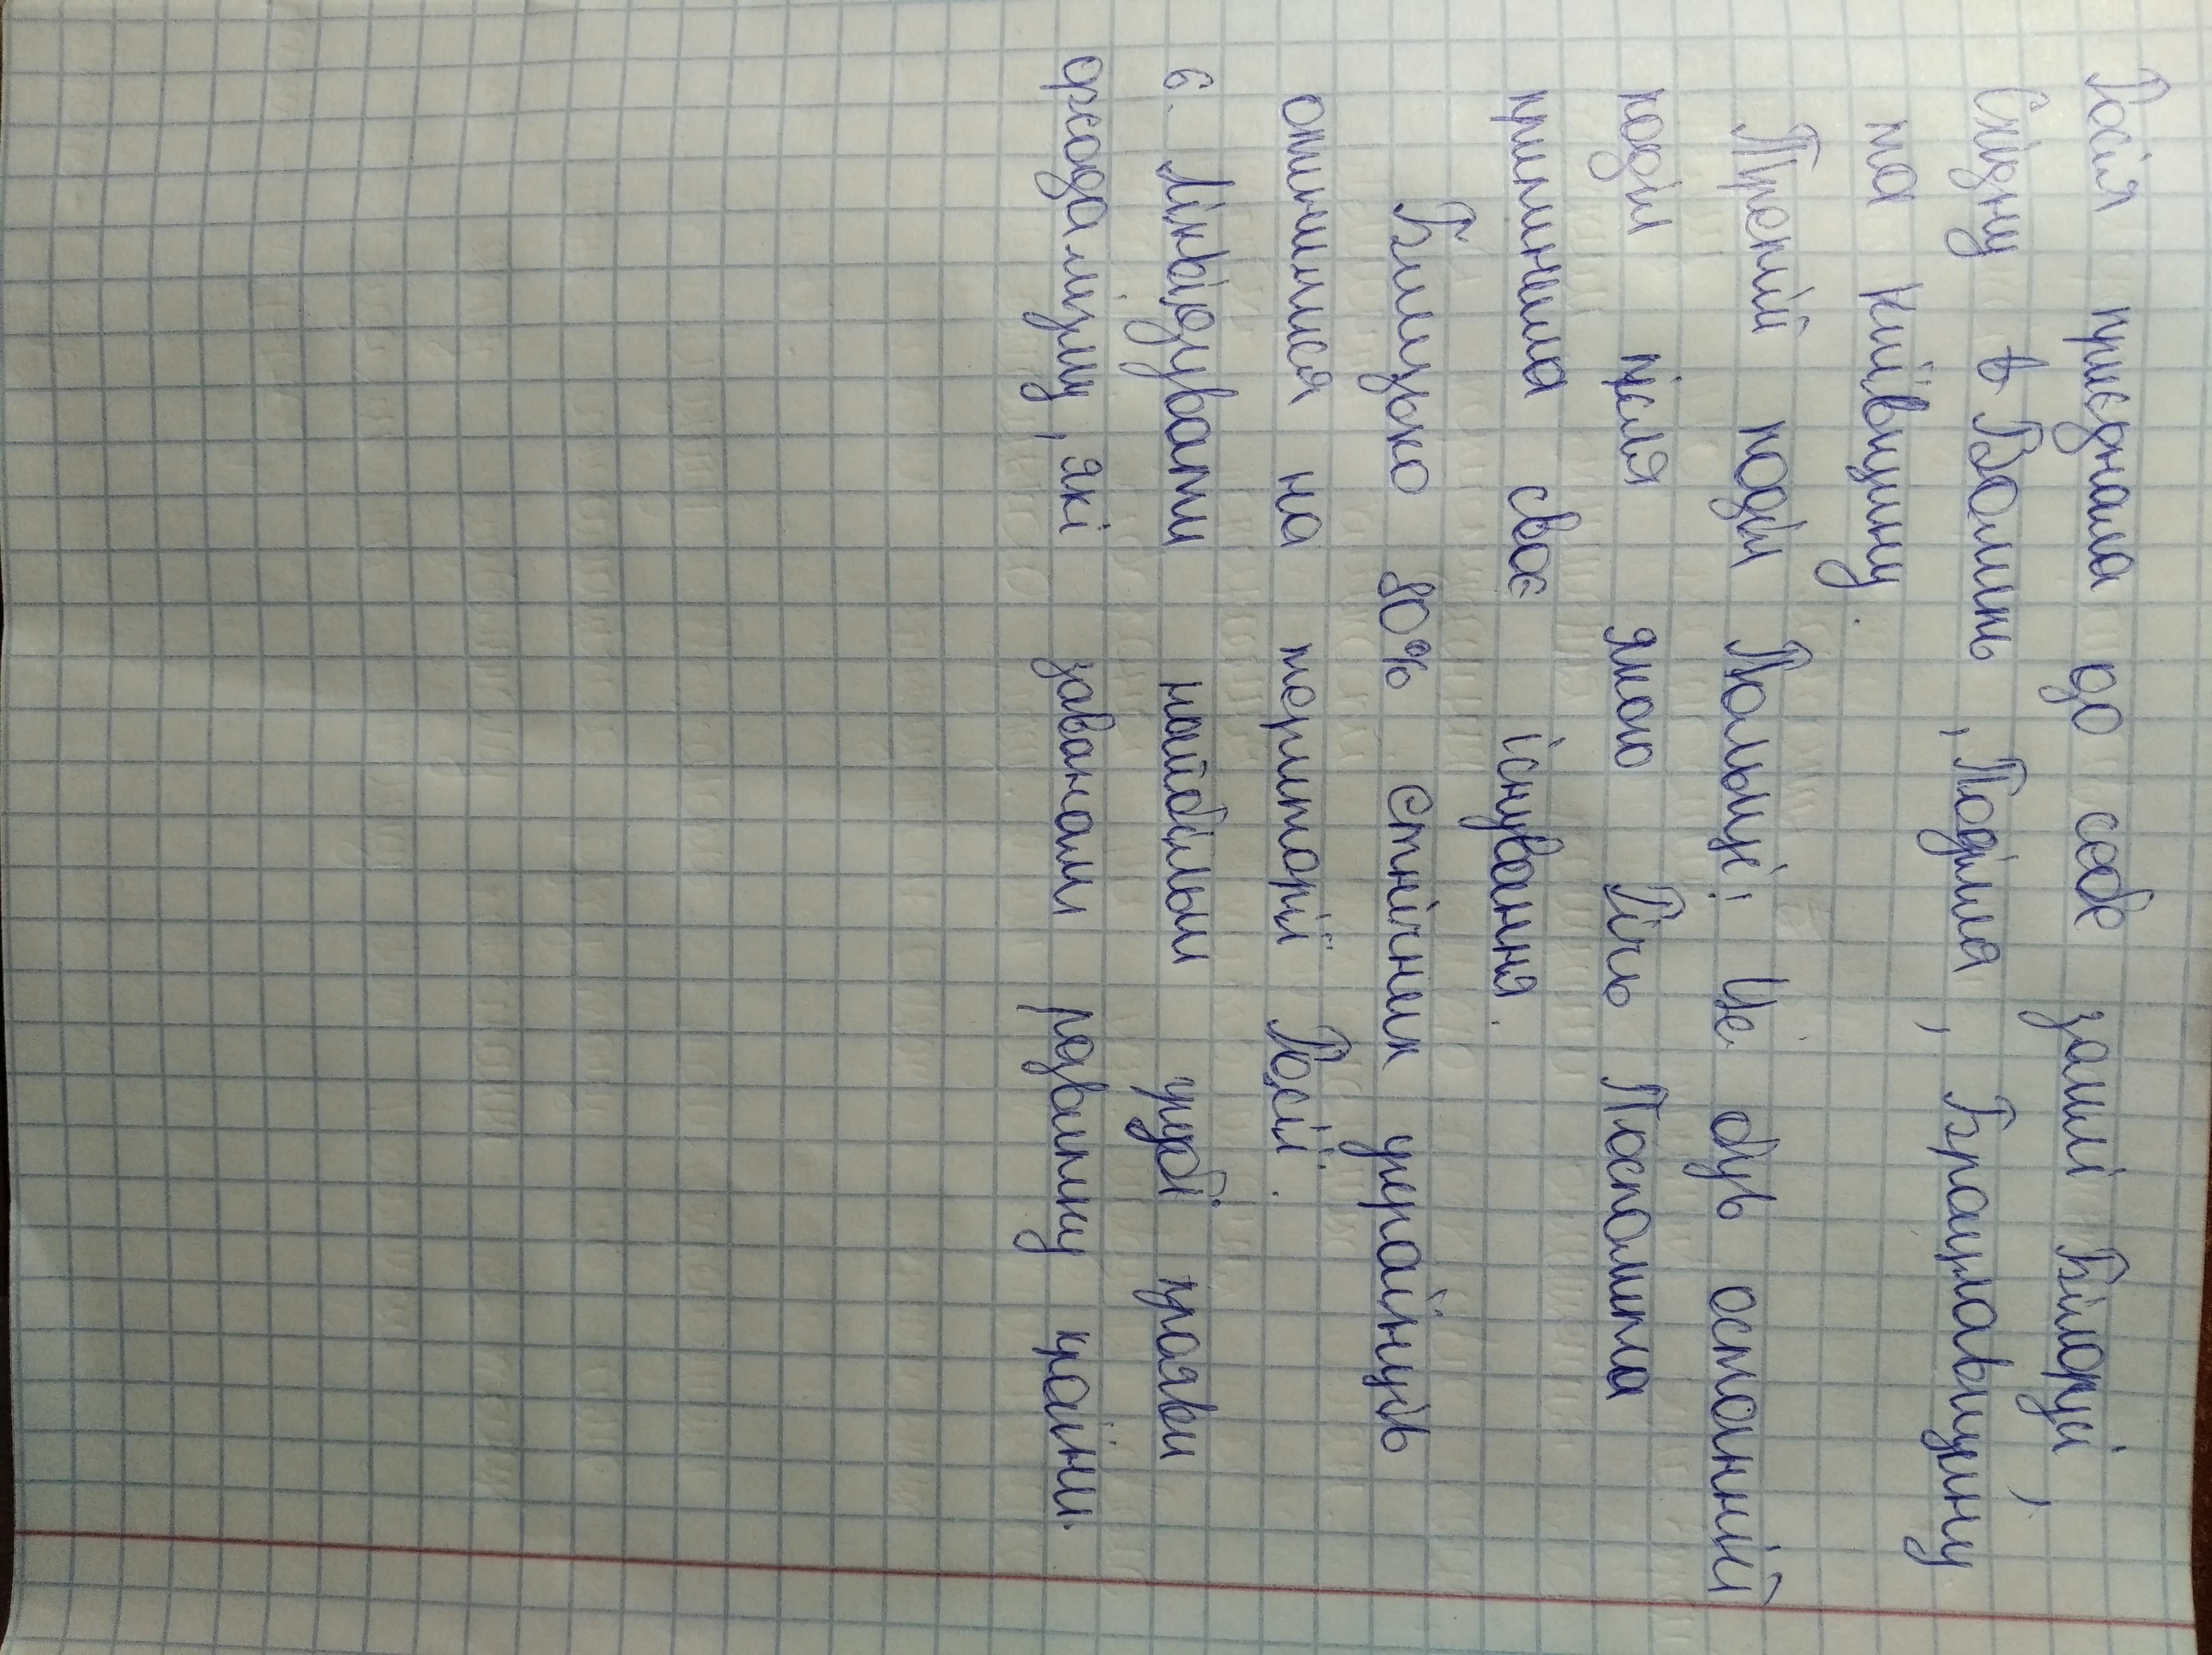 Росія приєднала до себе замлі Білорусі,
Східну в Волинь, Поділля, Брацлавщину
та Київщину.
Третій поділ Польщі! Це був останній
поділ після якого Річь Посполита
припинила своє існування.
Близько 80% етнічних українців
опинилися на території Росії.
6. Ліквідувати найбільш грубі прояви
феодалізму, які заважали розвитку країни.